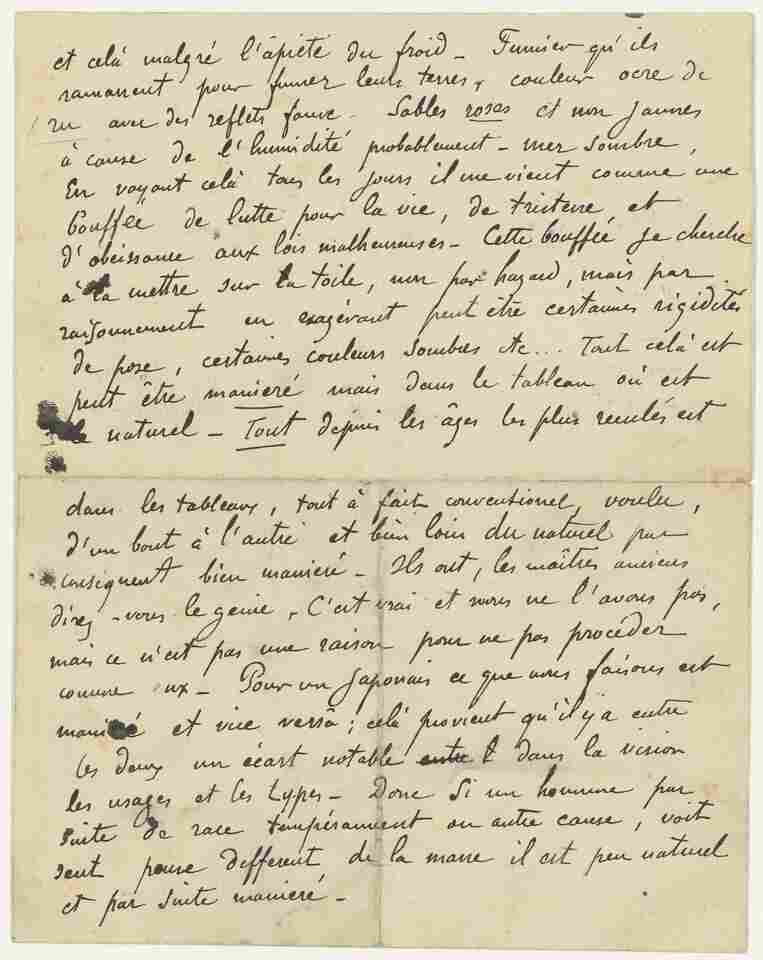 et celà malgré l'âpieté du froid - Fumier qu'ils
ramassent pour fumer leurs terres, couleur ocre de
ru avec des reflets fauve - Sables roses et non jaunes
à cause de l'humidité probablement - mer sombre,
En voyant celà tous les jours il me vient comme une
bouffée de lutte pour la vie, de tristesse et
d'obeissance aux lois malheureuses - Cette bouffée je cherche
à la mettre sur la toile, non par hazard, mais par
raisonnement en exagérant peut être certaines rigidités
de pose, certaines couleurs sombres etc... Tout celà est
peut être manieré mais dans le tableau où est
le naturel - Tout depuis les âges les plus reculés est
dans les tableaux, tout à fait conventionel, voulu,
d'un bout à l'autre et bien loin du naturel par
consiquent bien manieré - Ils ont, les maîtres anciens
direz-vous le genie, C'est vrai et nous ne l'avons pas,
mais ce n'est pas une raison pour ne pas procéder
comme eux - Pour un Japonais ce que nous faisons est
manieré et vice versâ; celà provient qu'il y a entre
les deux un écart notable entre l dans la vision
les usages et les types - Donc Si un homme par
suite de race tempérament ou autre cause, voit
sent pense different de la masse il est peu naturel
et par suite manieré -